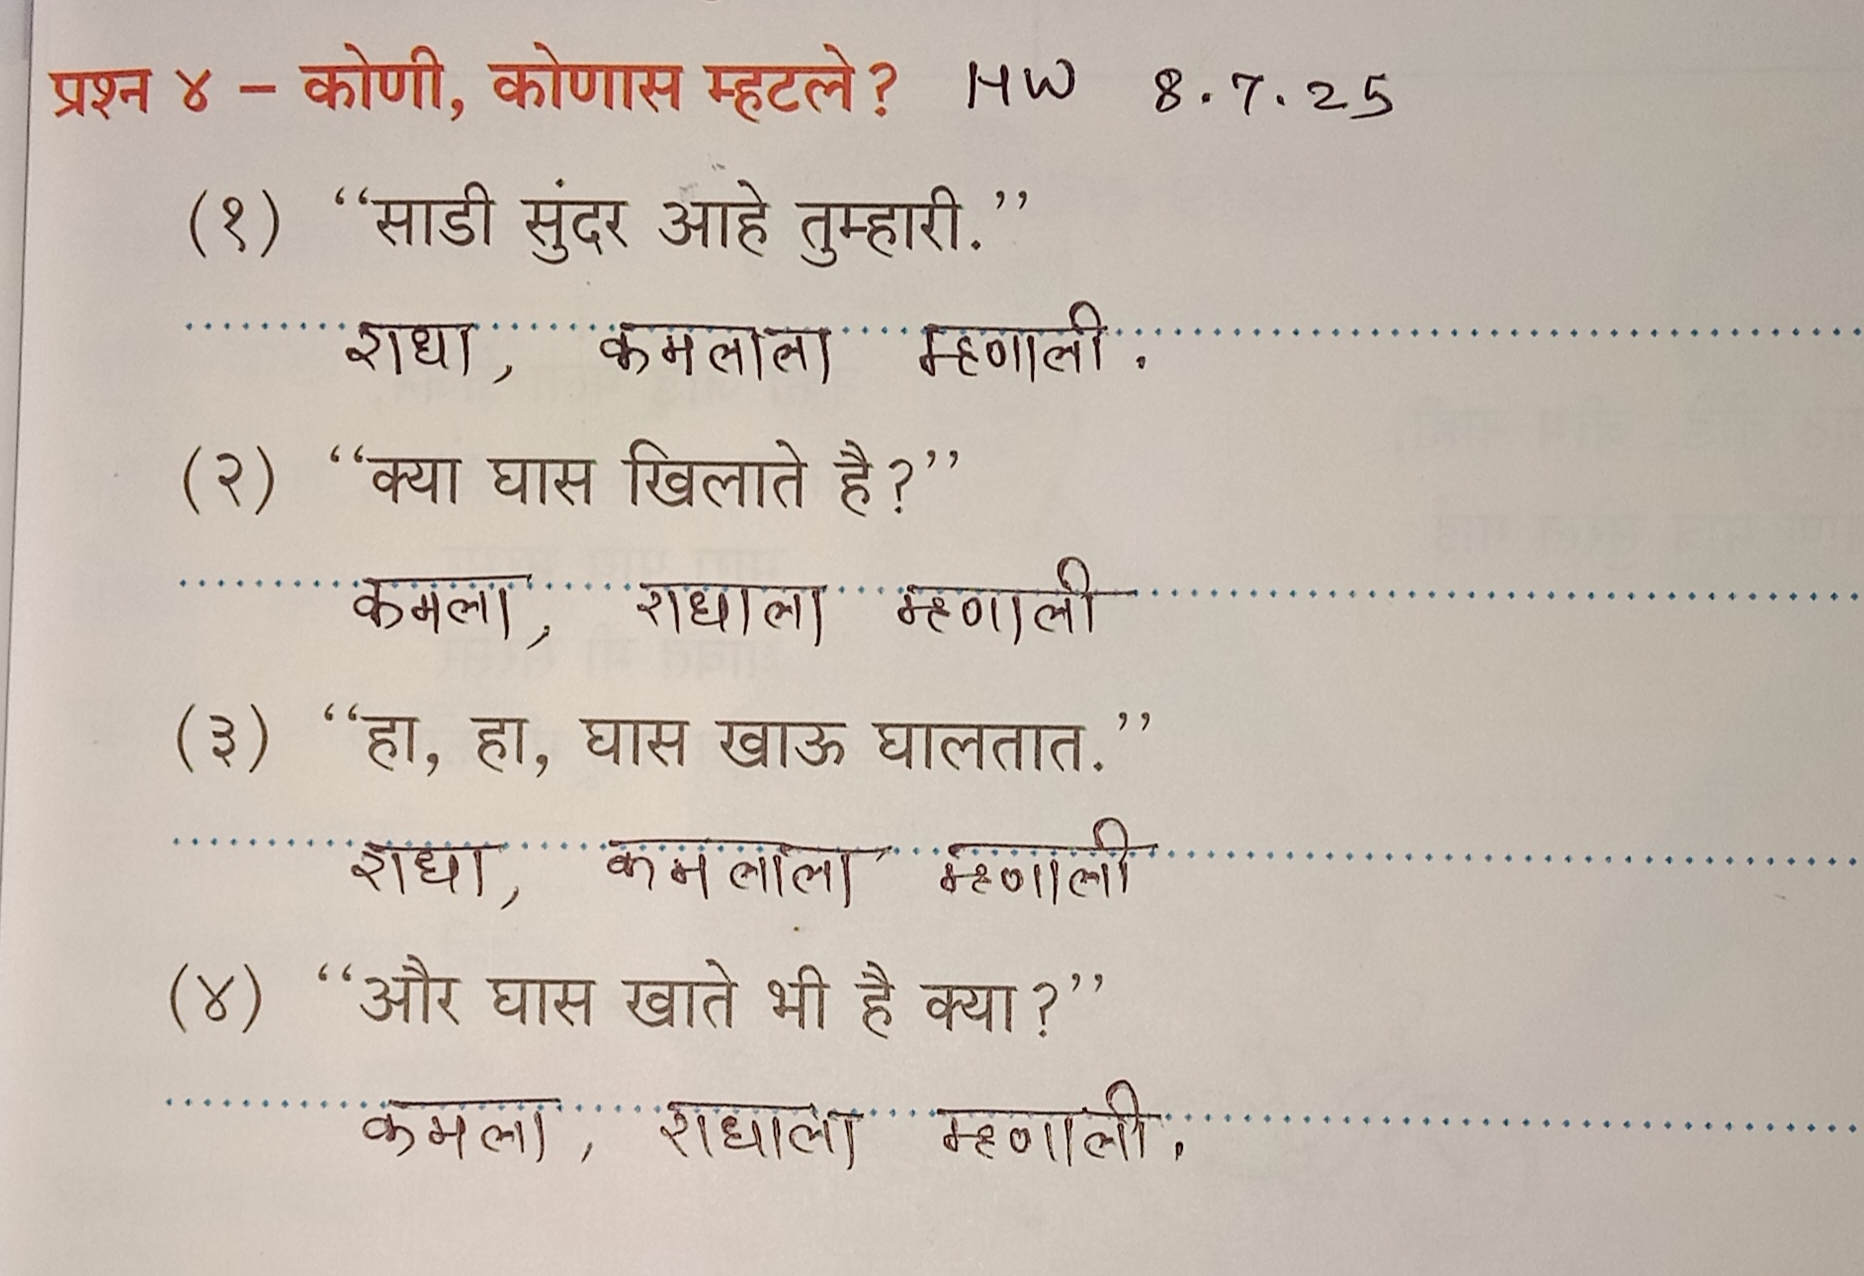 प्रश्न ४ – कोणी, कोणास म्हटले? HW 8.7.25
(१) “साडी सुंदर आहे तुम्हारी.”
राधा, कमलाला म्हणाली.
(२) “क्या घास खिलाते है?”
कमला, राधाला म्हणाली
(३) “हा, हा, घास खाऊ घालतात.”
राधा, कमलाला म्हणाली
(४) “और घास खाते भी है क्या?”
कमला, राधाला म्हणाली.